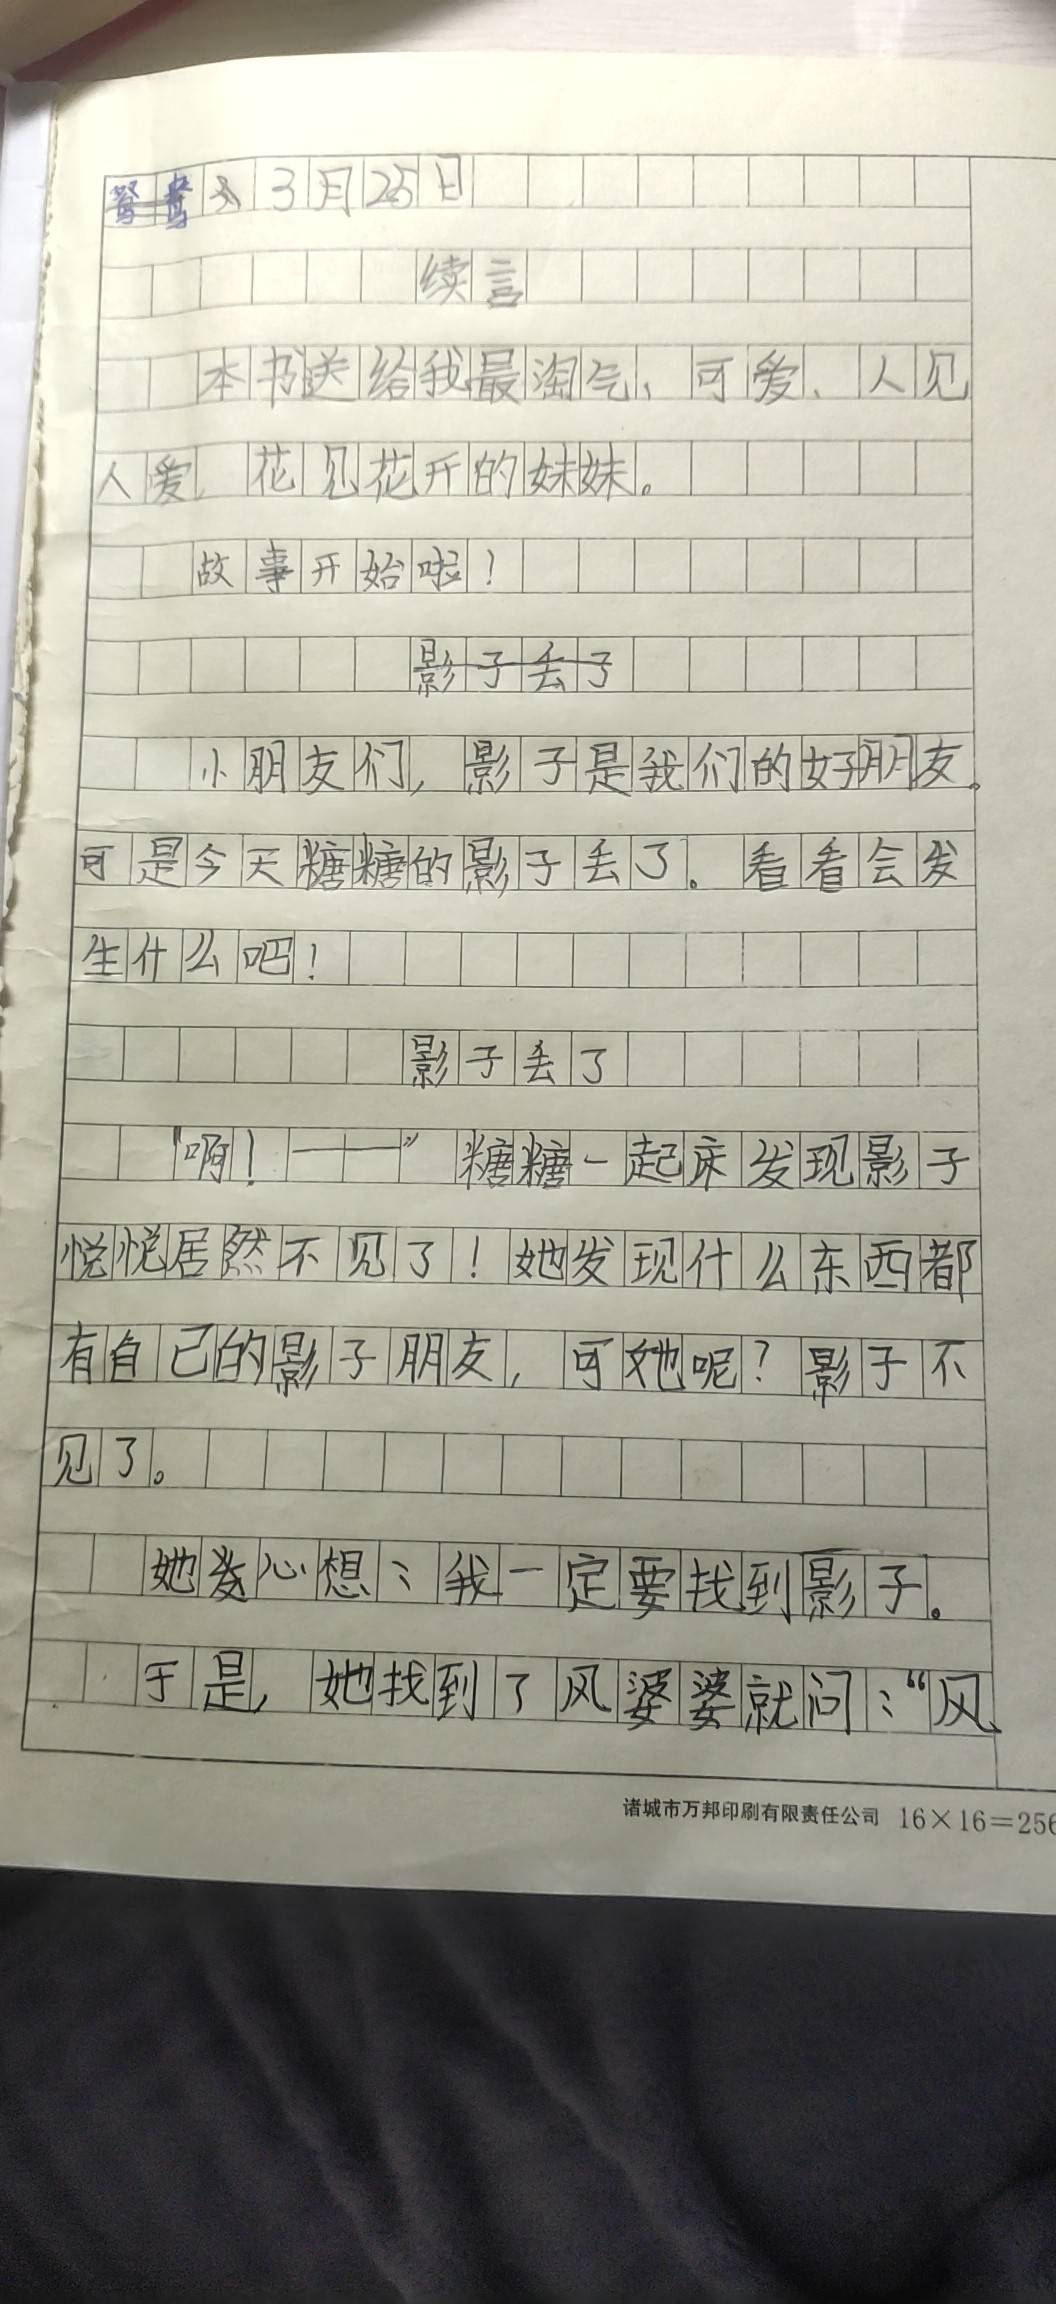 鸳鸯 3月25日
续言
本书送给我最淘气、可爱、人见
人爱、花见花开的妹妹。
故事开始啦！
影子丢了
小朋友们，影子是我们的好朋友。
可是今天糖糖的影子丢了。看看会发
生什么吧！
影子丢了
“啊！——”糖糖一起床发现影子
悦悦居然不见了！她发现什么东西都
有自己的影子朋友，可她呢？影子不
见了。
她心想：我一定要找到影子。
于是，她找到了风婆婆就问：“风
诸城市万邦印刷有限责任公司 16×16=256